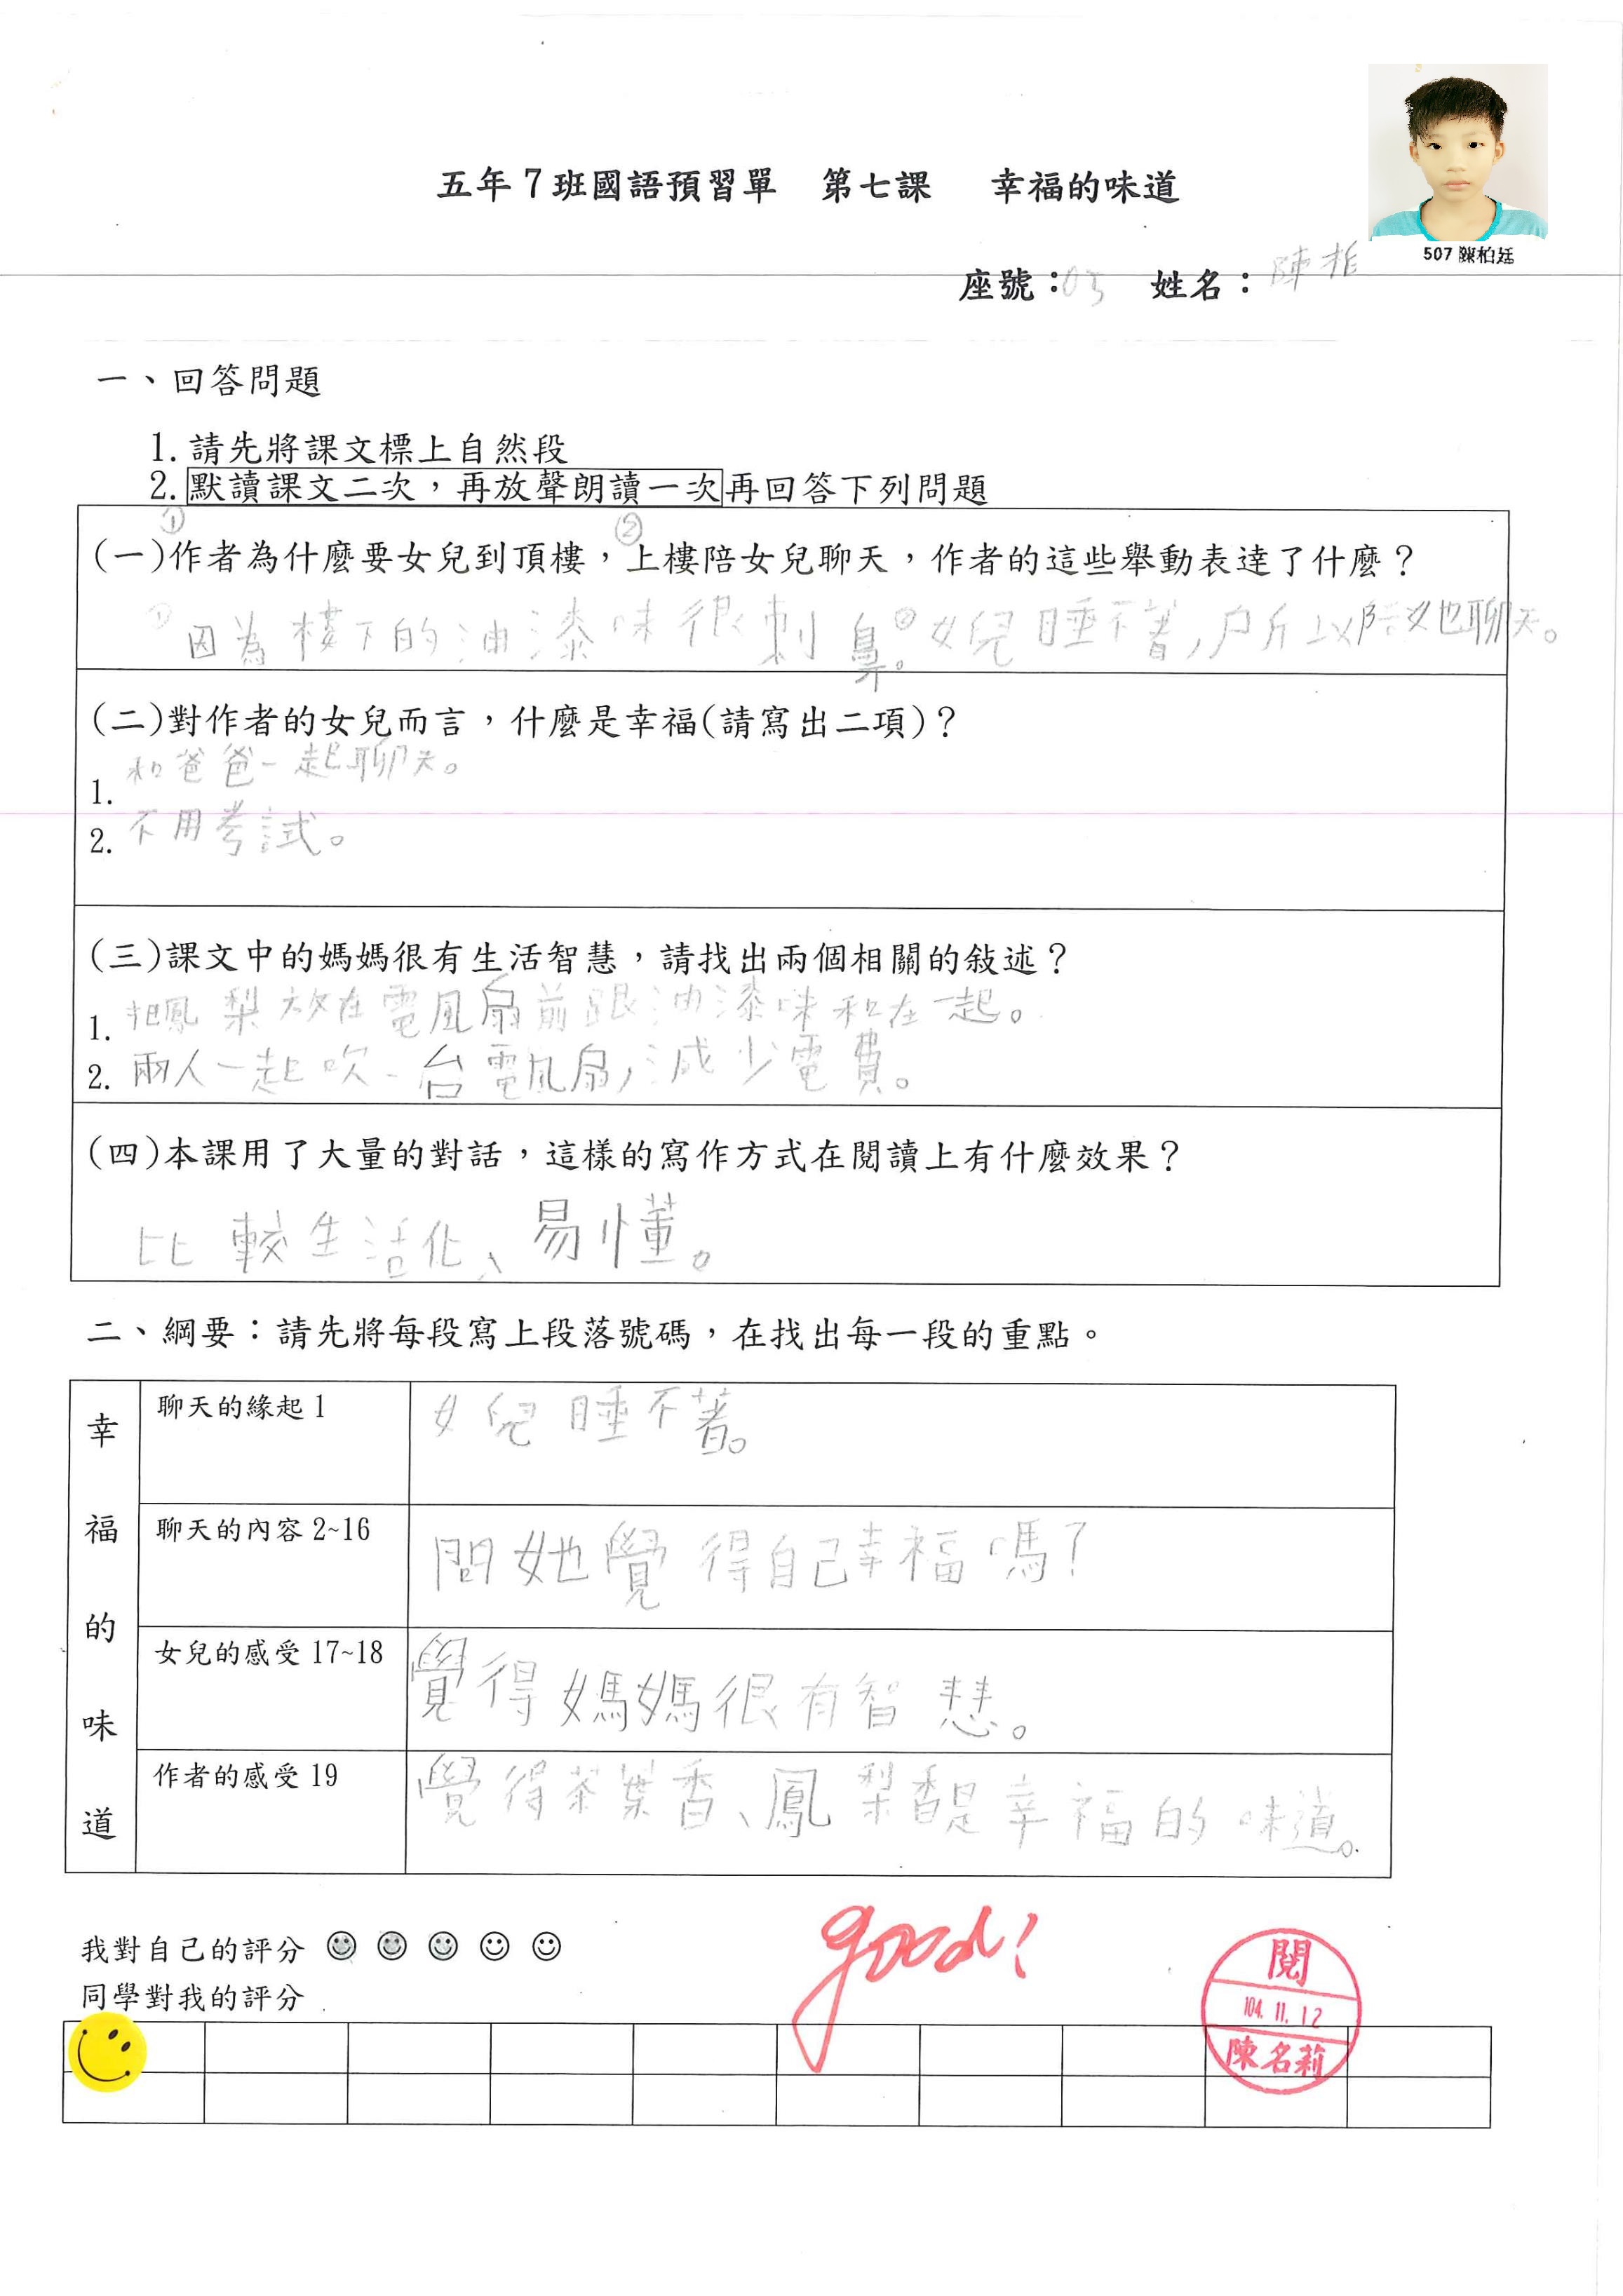 五年7班國語預習單 第七課 幸福的味道
507 陳柏廷
座號：03 姓名：陳柏
一、回答問題
1. 請先將課文標上自然段
2. 默讀課文二次，再放聲朗讀一次再回答下列問題
① ②
(一)作者為什麼要女兒到頂樓，上樓陪女兒聊天，作者的這些舉動表達了什麼？
①因為樓下的油漆味很刺鼻。②女兒睡不著，所以陪她聊天。
(二)對作者的女兒而言，什麼是幸福(請寫出二項)？
1. 和爸爸一起聊天。
2. 不用考試。
(三)課文中的媽媽很有生活智慧，請找出兩個相關的敘述？
1. 把鳳梨放在電風扇前跟油漆味和在一起。
2. 兩人一起吹一台電風扇，減少電費。
(四)本課用了大量的對話，這樣的寫作方式在閱讀上有什麼效果？
比較生活化、易懂。
二、綱要：請先將每段寫上段落號碼，在找出每一段的重點。
幸福的味道
聊天的緣起 1 女兒睡不著。
聊天的內容 2~16 問她覺得自己幸福嗎？
女兒的感受 17~18 覺得媽媽很有智慧。
作者的感受 19 覺得茶葉香、鳳梨香是幸福的味道。
我對自己的評分
同學對我的評分
good!
閱
104.11.12
陳名莉